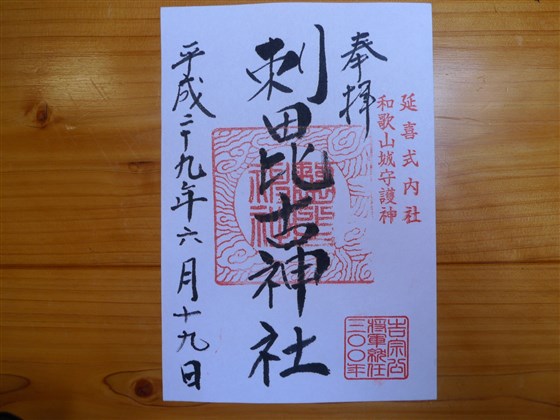 延喜式内社
和歌山城守護神
奉拝
刺田比古神社
平成二十九年六月十九日
吉宗公
将軍就任
三〇〇年